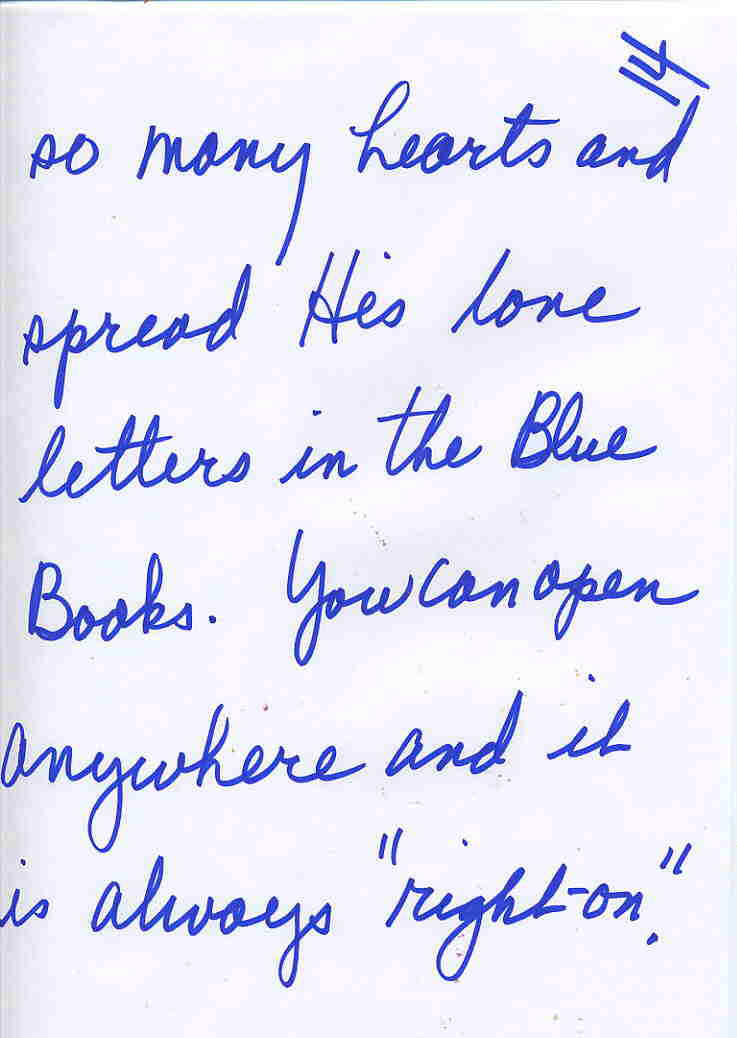 14
so many hearts and
spread His love
letters in the Blue
Books. You can open
anywhere and it
is always "right-on."